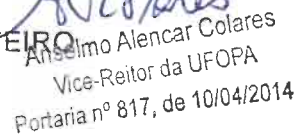 EIRO
Anselmo Alencar Colares
Vice-Reitor da UFOPA
Portaria nº 817, de 10/04/2014